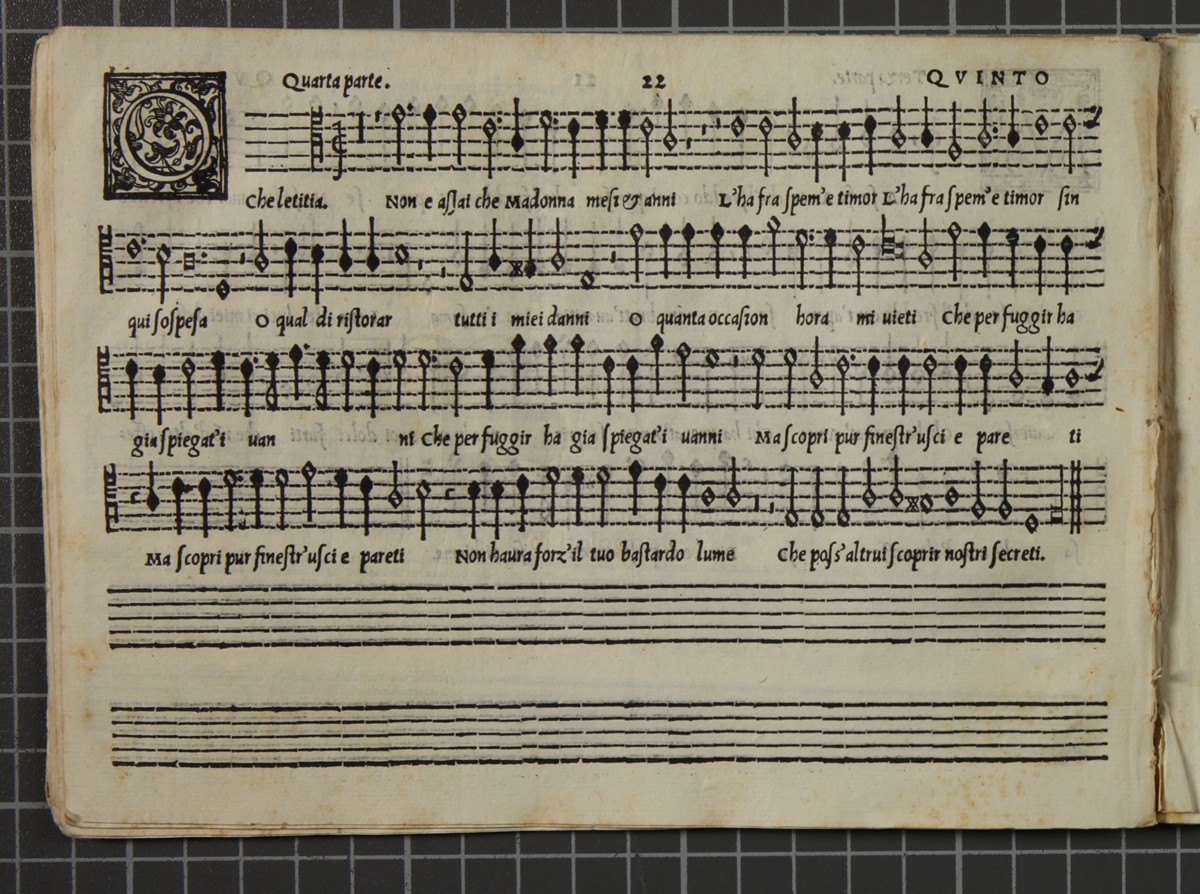 Quarta parte. 22 QVINTO
O
Che letitia. Non e aſſai che Madonna meſi & anni L'ha fra ſpem'e timor L'ha fra ſpem'e timor ſin
qui ſoſpeſa O qual di riſtorar tutti i miei danni O quanta occaſion hora mi uieti Che per fuggir ha
gia ſpiegat'i uan ni Che per fuggir ha gia ſpiegat'i uanni Ma ſcopri pur fineſtr'uſci e pare ti
Ma ſcopri pur fineſtr'uſci e pareti Non haura forz'il tuo baſtardo lume Che poſſ'altrui ſcoprir noſtri ſecreti.